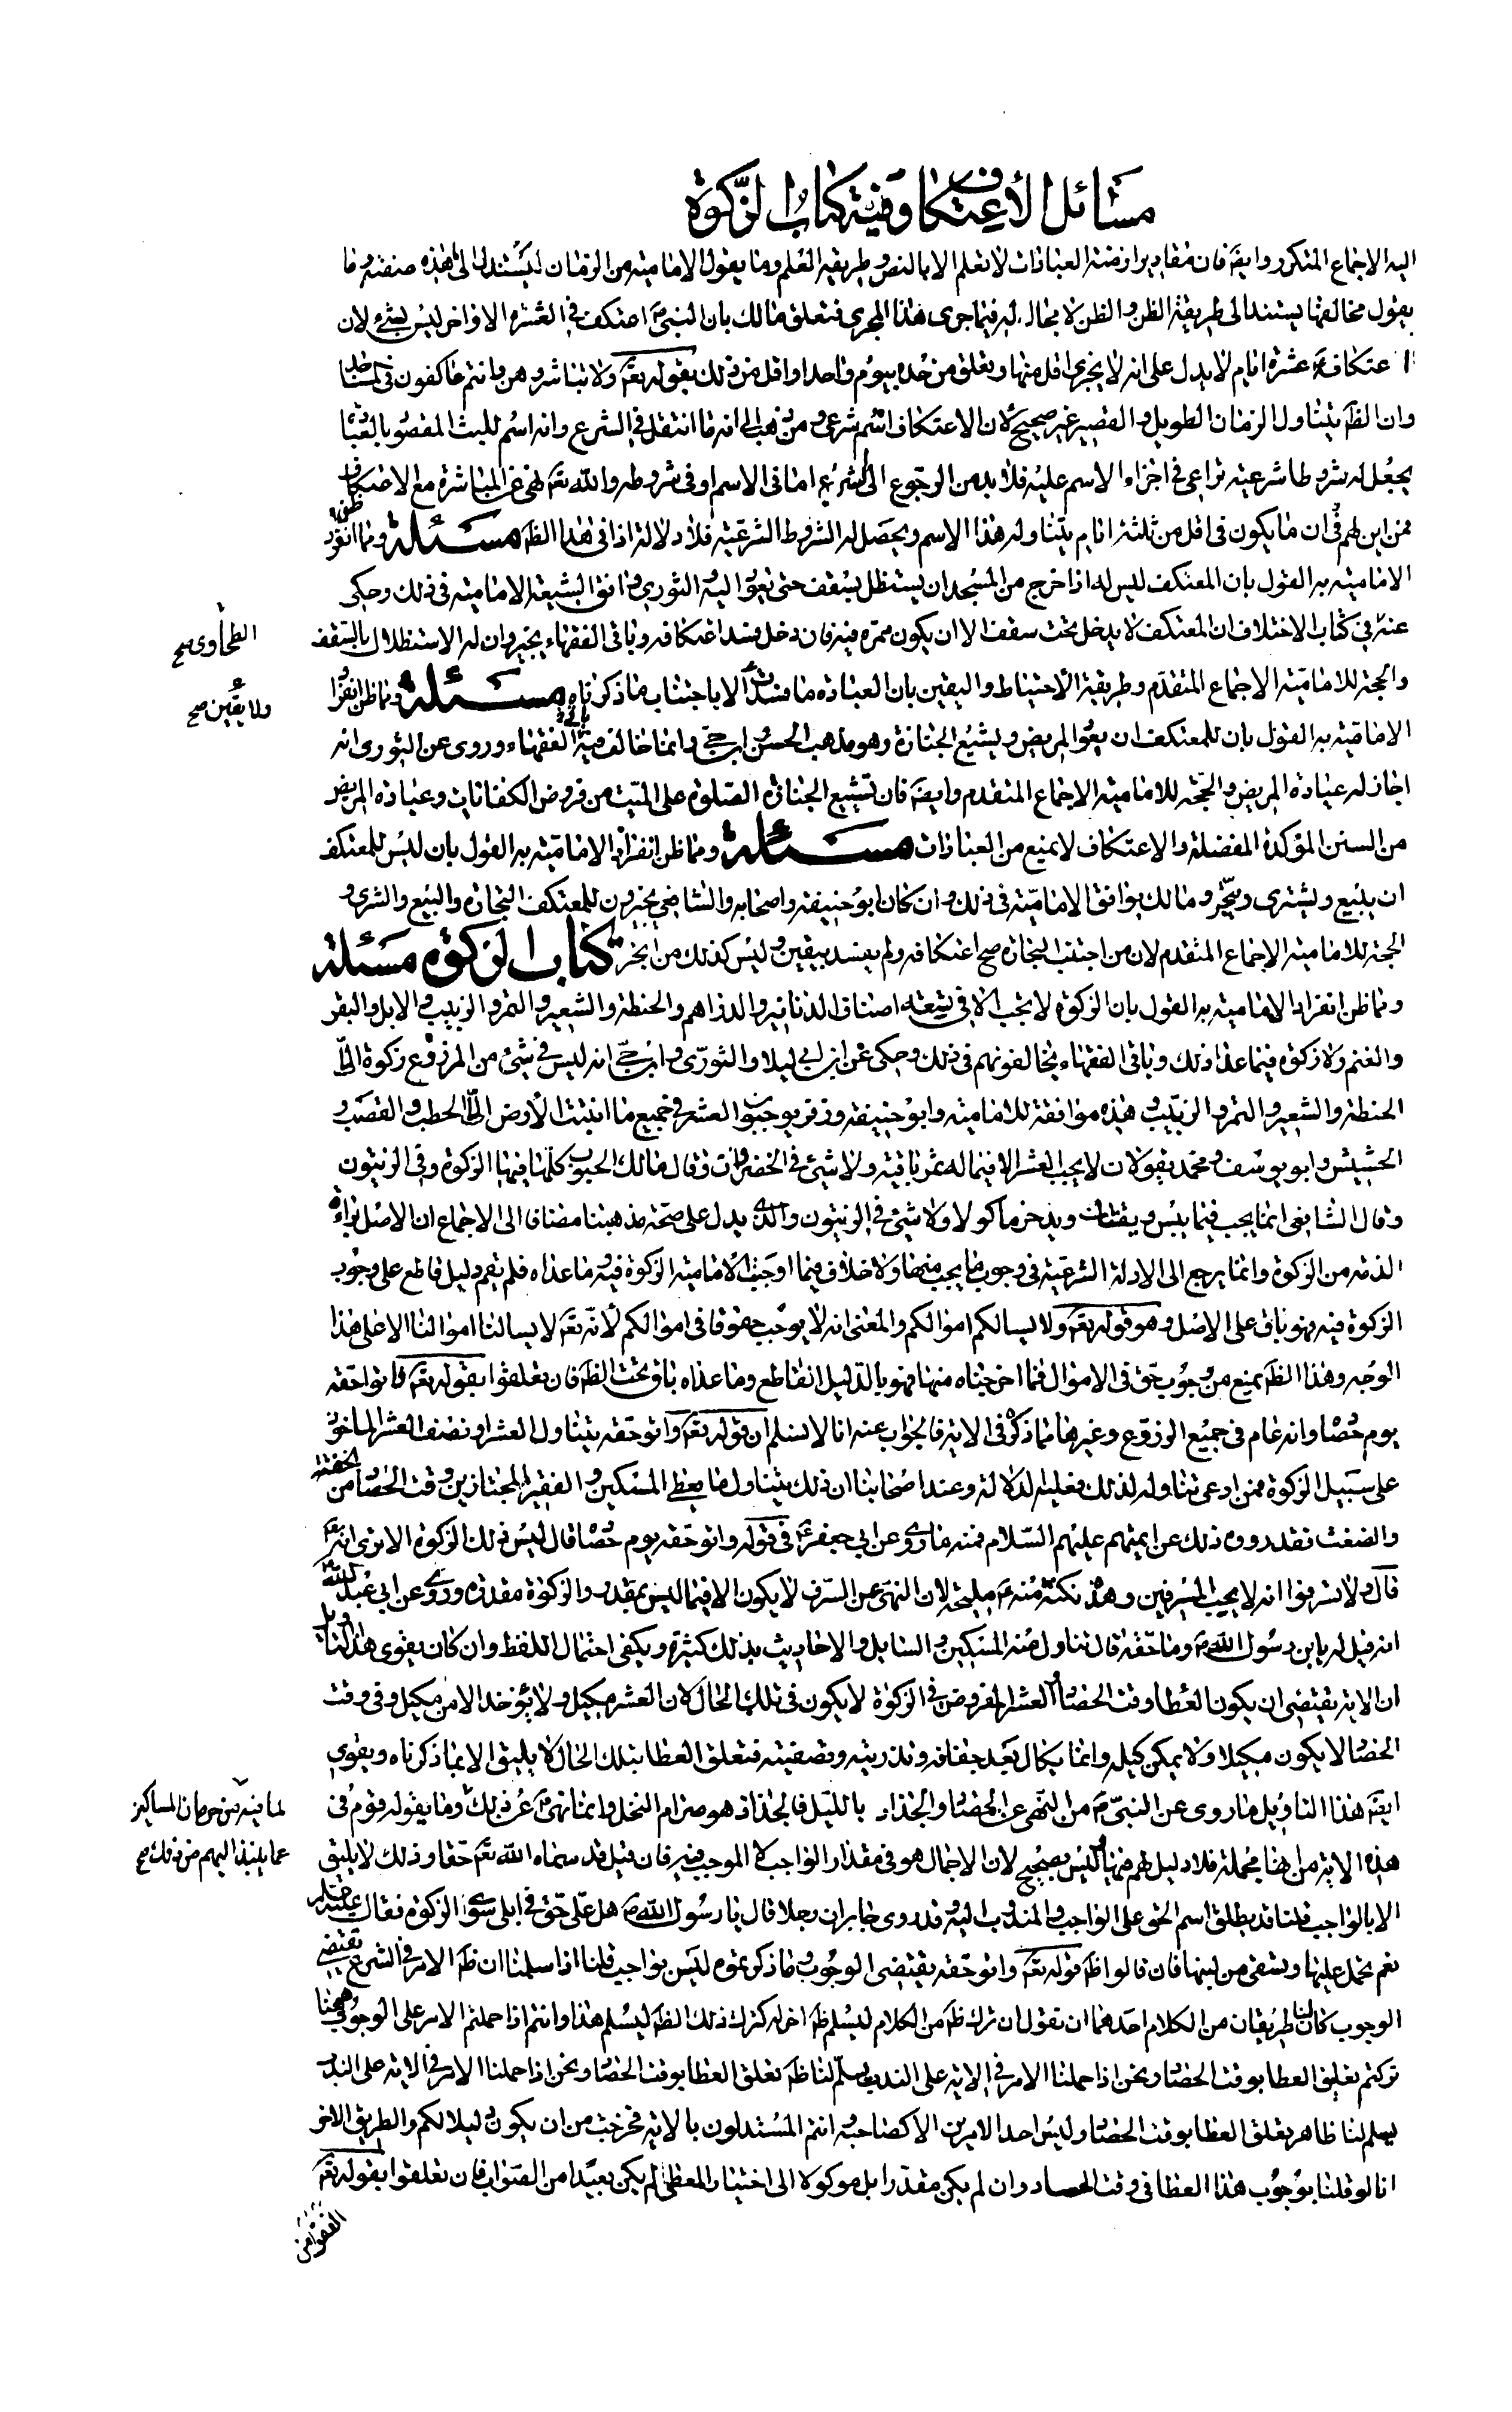 مسائل الاعتكاف وفيه كتاب الزكوة
اليه الاجماع المتكرر وايضَ فان مقادير ازمنة العبادات لا تعلم الا بالنص وطريقه العلم وما يقوله الامامية من الزمان يستند الى هذه صفته وما
يقول مخالفها يستند الى طريقة الظن والظن لا مجال له فيما جرى هذا المجرى فتعلق مالك بان النبيَ اعتكف في العشرة الاواخر ليس بشئ لان
اعتكافهَ عشرة ايام لا يدل على انه لا يجزي اقل منها وتعلق من حده بيوم واحد او اقل من ذلك بقوله تعَ ولا تباشروهن وانتم عاكفون في المساجد
وان الظَ يتناول الزمان الطويل والقصير غير صحيح لان الاعتكاف اسم شرعي ومن ذهب الى انه ما انتقل في الشرع وانه اسم للبث المقصود بالعبا
يجعل له شروطا شرعية تراعى في اجزاء الاسم عليه فلا بد من الرجوع الى الشرع اما في الاسم او في شروطه والله تعَ نهى عن المباشرة مع الاعتكاف
فمن اين لهم ان ما يكون في اقل من ثلثة ايام يتناوله هذا الاسم ويحصل له الشروط الشرعية فلا دلالة اذا في هذا الظَ مسئلة ومما ظن انفراد
الامامية به القول بان المعتكف ليس له اذا خرج من المسجد ان يستظل بسقف حتى يعود اليه والثوري يوافق الشيعة الامامية في ذلك وحكى
الطحاوي صح
عنه في كتاب الاختلاف ان المعتكف لا يدخل تحت سقف الا ان يكون ممره فيه فان دخل فسد اعتكافه وباقي الفقهاء يجيزون له الاستظلال بالسقف
والحجة للامامية الاجماع المتقدم وطريقة الاحتياط واليقين بان العبادة ما فسدت الا باجتناب ما ذكرناه مسئلة ومما ظن انفراد
ولا يقين صح
الامامية به القول بان للمعتكف ان يعود المريض ويشيع الجنازة وهو مذهب الحسن بن حي وانما خالف فيه باقي الفقهاء وروى عن الثوري انه
اجاز له عيادة المريض والحجة للامامية الاجماع المتقدم وايضَ فان تشييع الجنازة والصلوة على الميت من فروض الكفايات وعيادة المريض
من السنن المؤكدة المفضلة والاعتكاف لا يمنع من العبادات مسئلة ومما ظن انفراد الامامية به القول بان ليس للمعتكف
ان يبيع ويشتري ويتجر ومالك يوافق الامامية في ذلك وان كان ابو حنيفة واصحابه والشافعي يجيزون للمعتكف التجارة والبيع والشرى و
الحجة للامامية الاجماع المتقدم لان من اجتنب التجارة صح اعتكافه ولم يفسد بيقين وليس كذلك من اتجر كتاب الزكوة مسئلة
ومما ظن انفراد الامامية به القول بان الزكوة لا تجب الا في تسعة اصناف الدنانير والدراهم والحنطة والشعير والتمر والزبيب والابل والبقر
والغنم ولا زكوة فيما عدا ذلك وباقي الفقهاء يخالفونهم في ذلك وحكى عن ابن ابي ليلا والثوري وابن حي انه ليس في شئ من المزروع زكوة الا
الحنطة والشعير والتمر والزبيب وهذه موافقة للامامية وابو حنيفة وزفر يوجبون العشر في جميع ما انبتت الارض الا الحطب والقصب و
الحشيش وابو يوسف ومحمد يقولان لا يجب العشر الا فيما له ثمرة باقية ولا شئ في الخضراوات وقال مالك الحبوب كلها فيها الزكوة وفي الزيتون
وقال الشافعي انما يجب فيما ييبس ويقتات ويدخر ماكولا ولا شئ في الزيتون والذي يدل على صحة مذهبنا مضافا الى الاجماع ان الاصل براءة
الذمة من الزكوة وانما يرجع الى الادلة الشرعية في وجوب ما يجب منها ولا خلاف فيما اوجبت الامامية الزكوة فيه وما عداه فلم يقم دليل قاطع على وجوب
الزكوة فيه فهو باق على الاصل وهو قوله تعَ ولا يسالكم اموالكم والمعنى انه لا يوجب حقوقا في اموالكم لانه تعَ لا يسالنا اموالنا الا على هذا
الوجه وهذا الظَ يمنع من وجوب حق في الاموال فما اخرجناه منها فهو بالدليل القاطع وما عداه باق تحت الظَ فان تعلقوا بقوله تعَ واتوا حقه
يوم حصاده وانه عام في جميع الزروع وغيرها مما ذكره في الاية فالجواب عنه انا لا نسلم ان قوله تعَ واتوا حقه يتناول العشر او نصف العشر الماخوذ
على سبيل الزكوة فمن ادعى تناوله لذلك فعليه الدلالة وعند اصحابنا ان ذلك يتناول ما يعطى المسكين والفقير المجتازين وقت الحصاد من الحفنة
والضغث فقد رووه ذلك عن ائمتهم عليهم السلام فمنه ما روى عن ابي جعفرَ في قوله واتوا حقه يوم حصاده قال ليس ذلك الزكوة الا ترى انه تعَ
قال ولا تسرفوا انه لا يحب المسرفين وهذه نكتة منهَ مليحة لان النهي عن السرف لا يكون الا فيما ليس بمقدر والزكوة مقدرة وروى عن ابي عبد اللهَ
انه قيل له يا بن رسول اللهَ وما حقه قال تناول منه المسكين والسايل والاحاديث بذلك كثيرة ويكفي احتمال اللفظ وان كان يقوى هذا التاويل
ان الاية تقتضي ان يكون العطا وقت الحصاد والعشر المفروض في الزكوة لا يكون في تلك الحال لان العشر مكيل ولا يؤخذ الا من مكيل وفي وقت
الحصاد لا يكون مكيلا ولا يمكن كيله وانما يكال بعد جفافه وتذريته وتصفيته فتعلق العطا بتلك الحال لا يليق الا بما ذكرناه ويقوى
ايضَ هذا التاويل ما روى عن النبيَ من النهي عن الحصاد والجذاذ بالليل فالجذاذ هو صرام النخل وانما نهىَ عن ذلك وما يقوله قوم في
لما فيه من حرمان المساكين
عما ينبذ اليهم من ذلك صح
هذه الاية من انها مجملة فلا دليل لهم منها ليس بصحيح لان الاجمال هو في مقدار الواجب لا الموجب فيه فان قيل قد سماه الله تعَ حقا وذلك لا يليق
الا بالواجب قلنا قد يطلق اسم الحق على الواجب والمندوب اليه وقد روى جابر ان رجلا قال يا رسول اللهَ هل عليّ حق في ابلي سوى الزكوة فقال
نعم تحمل عليها وتسقى من لبنها فان قالوا ظَ قوله تعَ واتوا حقه يقتضي الوجوب وما ذكرتموه ليس بواجب قلنا اذا سلمنا ان ظَ الامر في الشرع يقتضي
الوجوب كان لنا طريقان من الكلام احدهما ان نقول ان ترك ظَ من الكلام ليسلم ظَ اخر له كترك ذلك الظَ ليسلم هذا وانتم اذا حملتم الامر على الوجوب هيهنا
تركتم تعليق العطا بوقت الحصاد ونحن اذا حملنا الامر في الاية على الندب سلم لنا ظَ تعلق العطا بوقت الحصاد ونحن اذا حملنا الامر في الاية على الندب
يسلم لنا ظاهر تعلق العطا بوقت الحصاد وليس احد الامرين الا كصاحبه وانتم المستدلون بالاية فخرجت من ان يكون دليلا لكم والطريق الاخر
انا لو قلنا بوجوب هذا العطا في وقت الحصاد وان لم يكن مقدرا بل موكولا الى اختيار المعطى لم يكن بعيدا من الصواب فان تعلقوا بقوله تعَ
انفقوا من